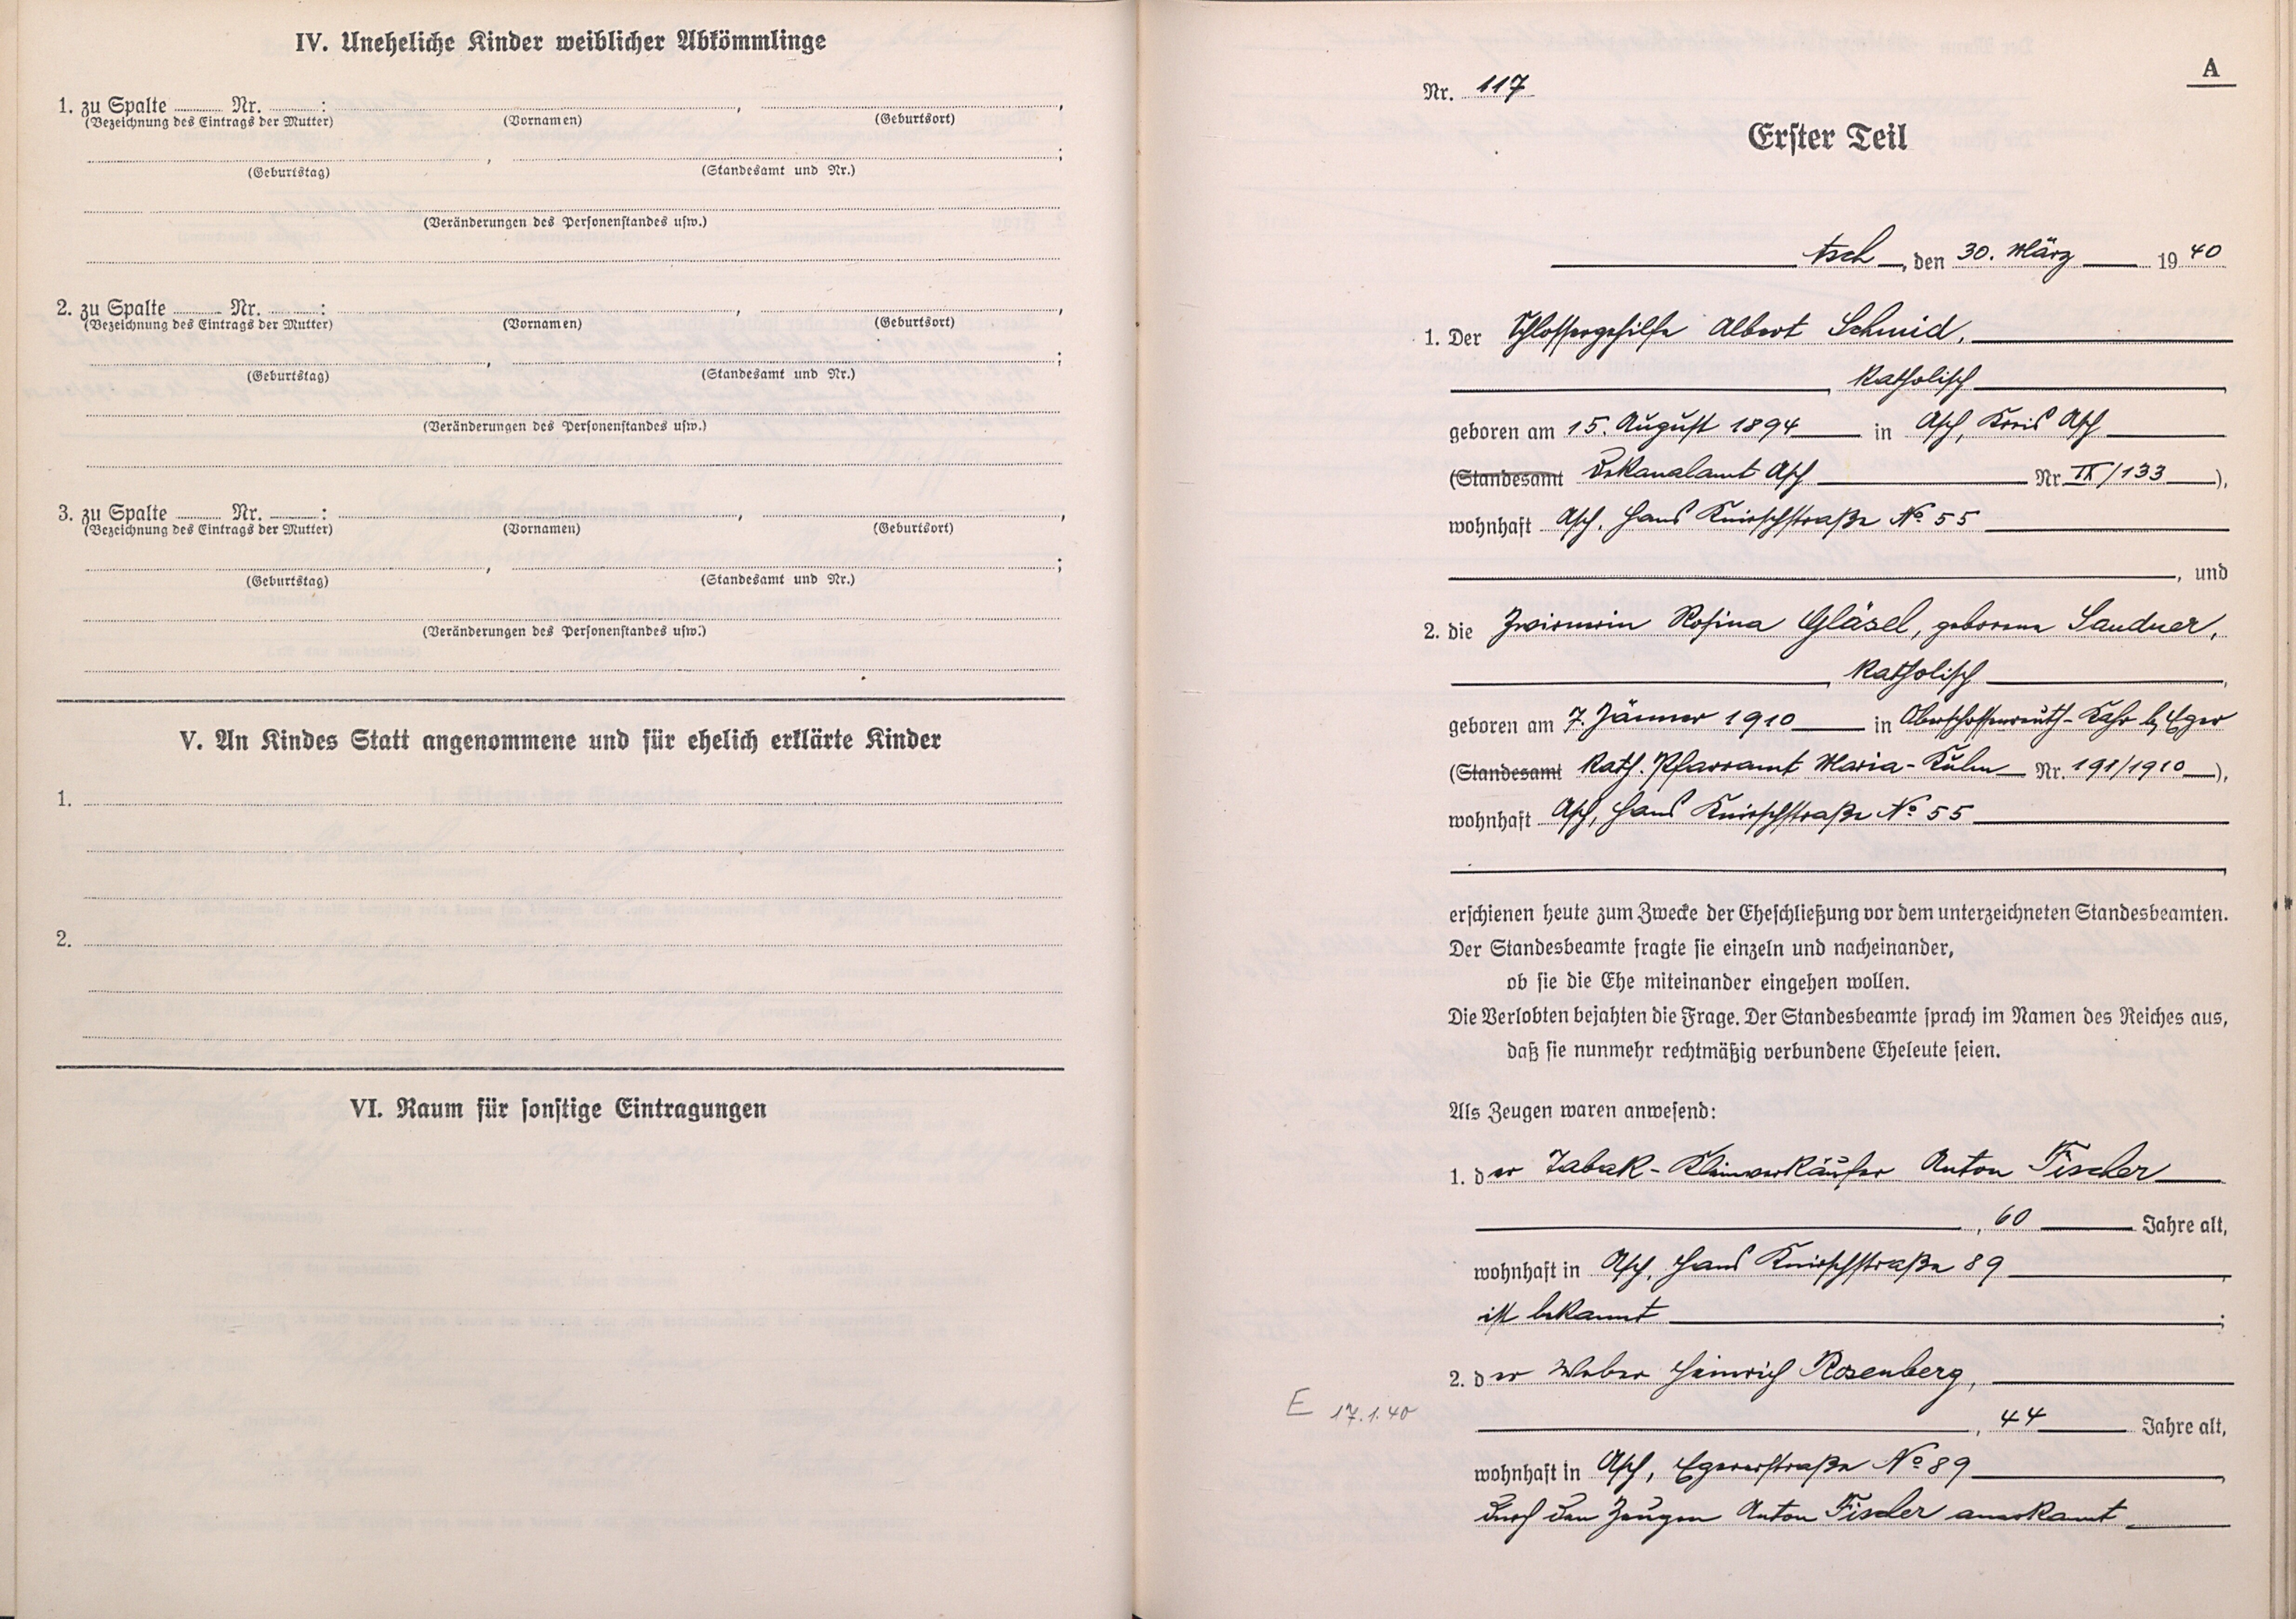 IV. Uneheliche Kinder weiblicher Abkömmlinge
1. zu Spalte ........ Nr. ........ : , ,
(Bezeichnung des Eintrags der Mutter) (Vornamen) (Geburtsort)
, ;
(Geburtstag) (Standesamt und Nr.)
(Veränderungen des Personenstandes usw.)
2. zu Spalte ........ Nr. ........ : , ,
(Bezeichnung des Eintrags der Mutter) (Vornamen) (Geburtsort)
, ;
(Geburtstag) (Standesamt und Nr.)
(Veränderungen des Personenstandes usw.)
3. zu Spalte ........ Nr. ........ : , ,
(Bezeichnung des Eintrags der Mutter) (Vornamen) (Geburtsort)
, ;
(Geburtstag) (Standesamt und Nr.)
(Veränderungen des Personenstandes usw.)
V. An Kindes Statt angenommene und für ehelich erklärte Kinder
1.
2.
VI. Raum für sonstige Eintragungen
A
Nr. 117
Erster Teil
Asch, den 30. März 1940
1. Der Schlossergehilfe Albert Schmid,
, katholisch,
geboren am 15. August 1894 in Asch, Kreis Asch
(Standesamt Dekanalamt Asch Nr. IX/133),
wohnhaft Asch, Hans Knirschstraße No 55
, und
2. die Zwirnerin Rosina Gläsel, geborene Sandner,
, katholisch,
geboren am 7. Jänner 1910 in Oberschossenreuth-Kahr b/Eger
(Standesamt Kath. Pfarramt Maria-Kulm Nr. 191/1910),
wohnhaft Asch, Hans Knirschstraße No 55
erschienen heute zum Zwecke der Eheschließung vor dem unterzeichneten Standesbeamten.
Der Standesbeamte fragte sie einzeln und nacheinander,
ob sie die Ehe miteinander eingehen wollen.
Die Verlobten bejahten die Frage. Der Standesbeamte sprach im Namen des Reiches aus,
daß sie nunmehr rechtmäßig verbundene Eheleute seien.
Als Zeugen waren anwesend:
1. der Tabak-Kleinverkäufer Anton Fischer
, 60 Jahre alt,
wohnhaft in Asch, Hans Knirschstraße 89
ist bekannt ;
2. der Weber Heinrich Rosenberg,
, 44 Jahre alt,
E 17.1.40
wohnhaft in Asch, Egererstraße No 89,
durch den Zeugen Anton Fischer anerkannt